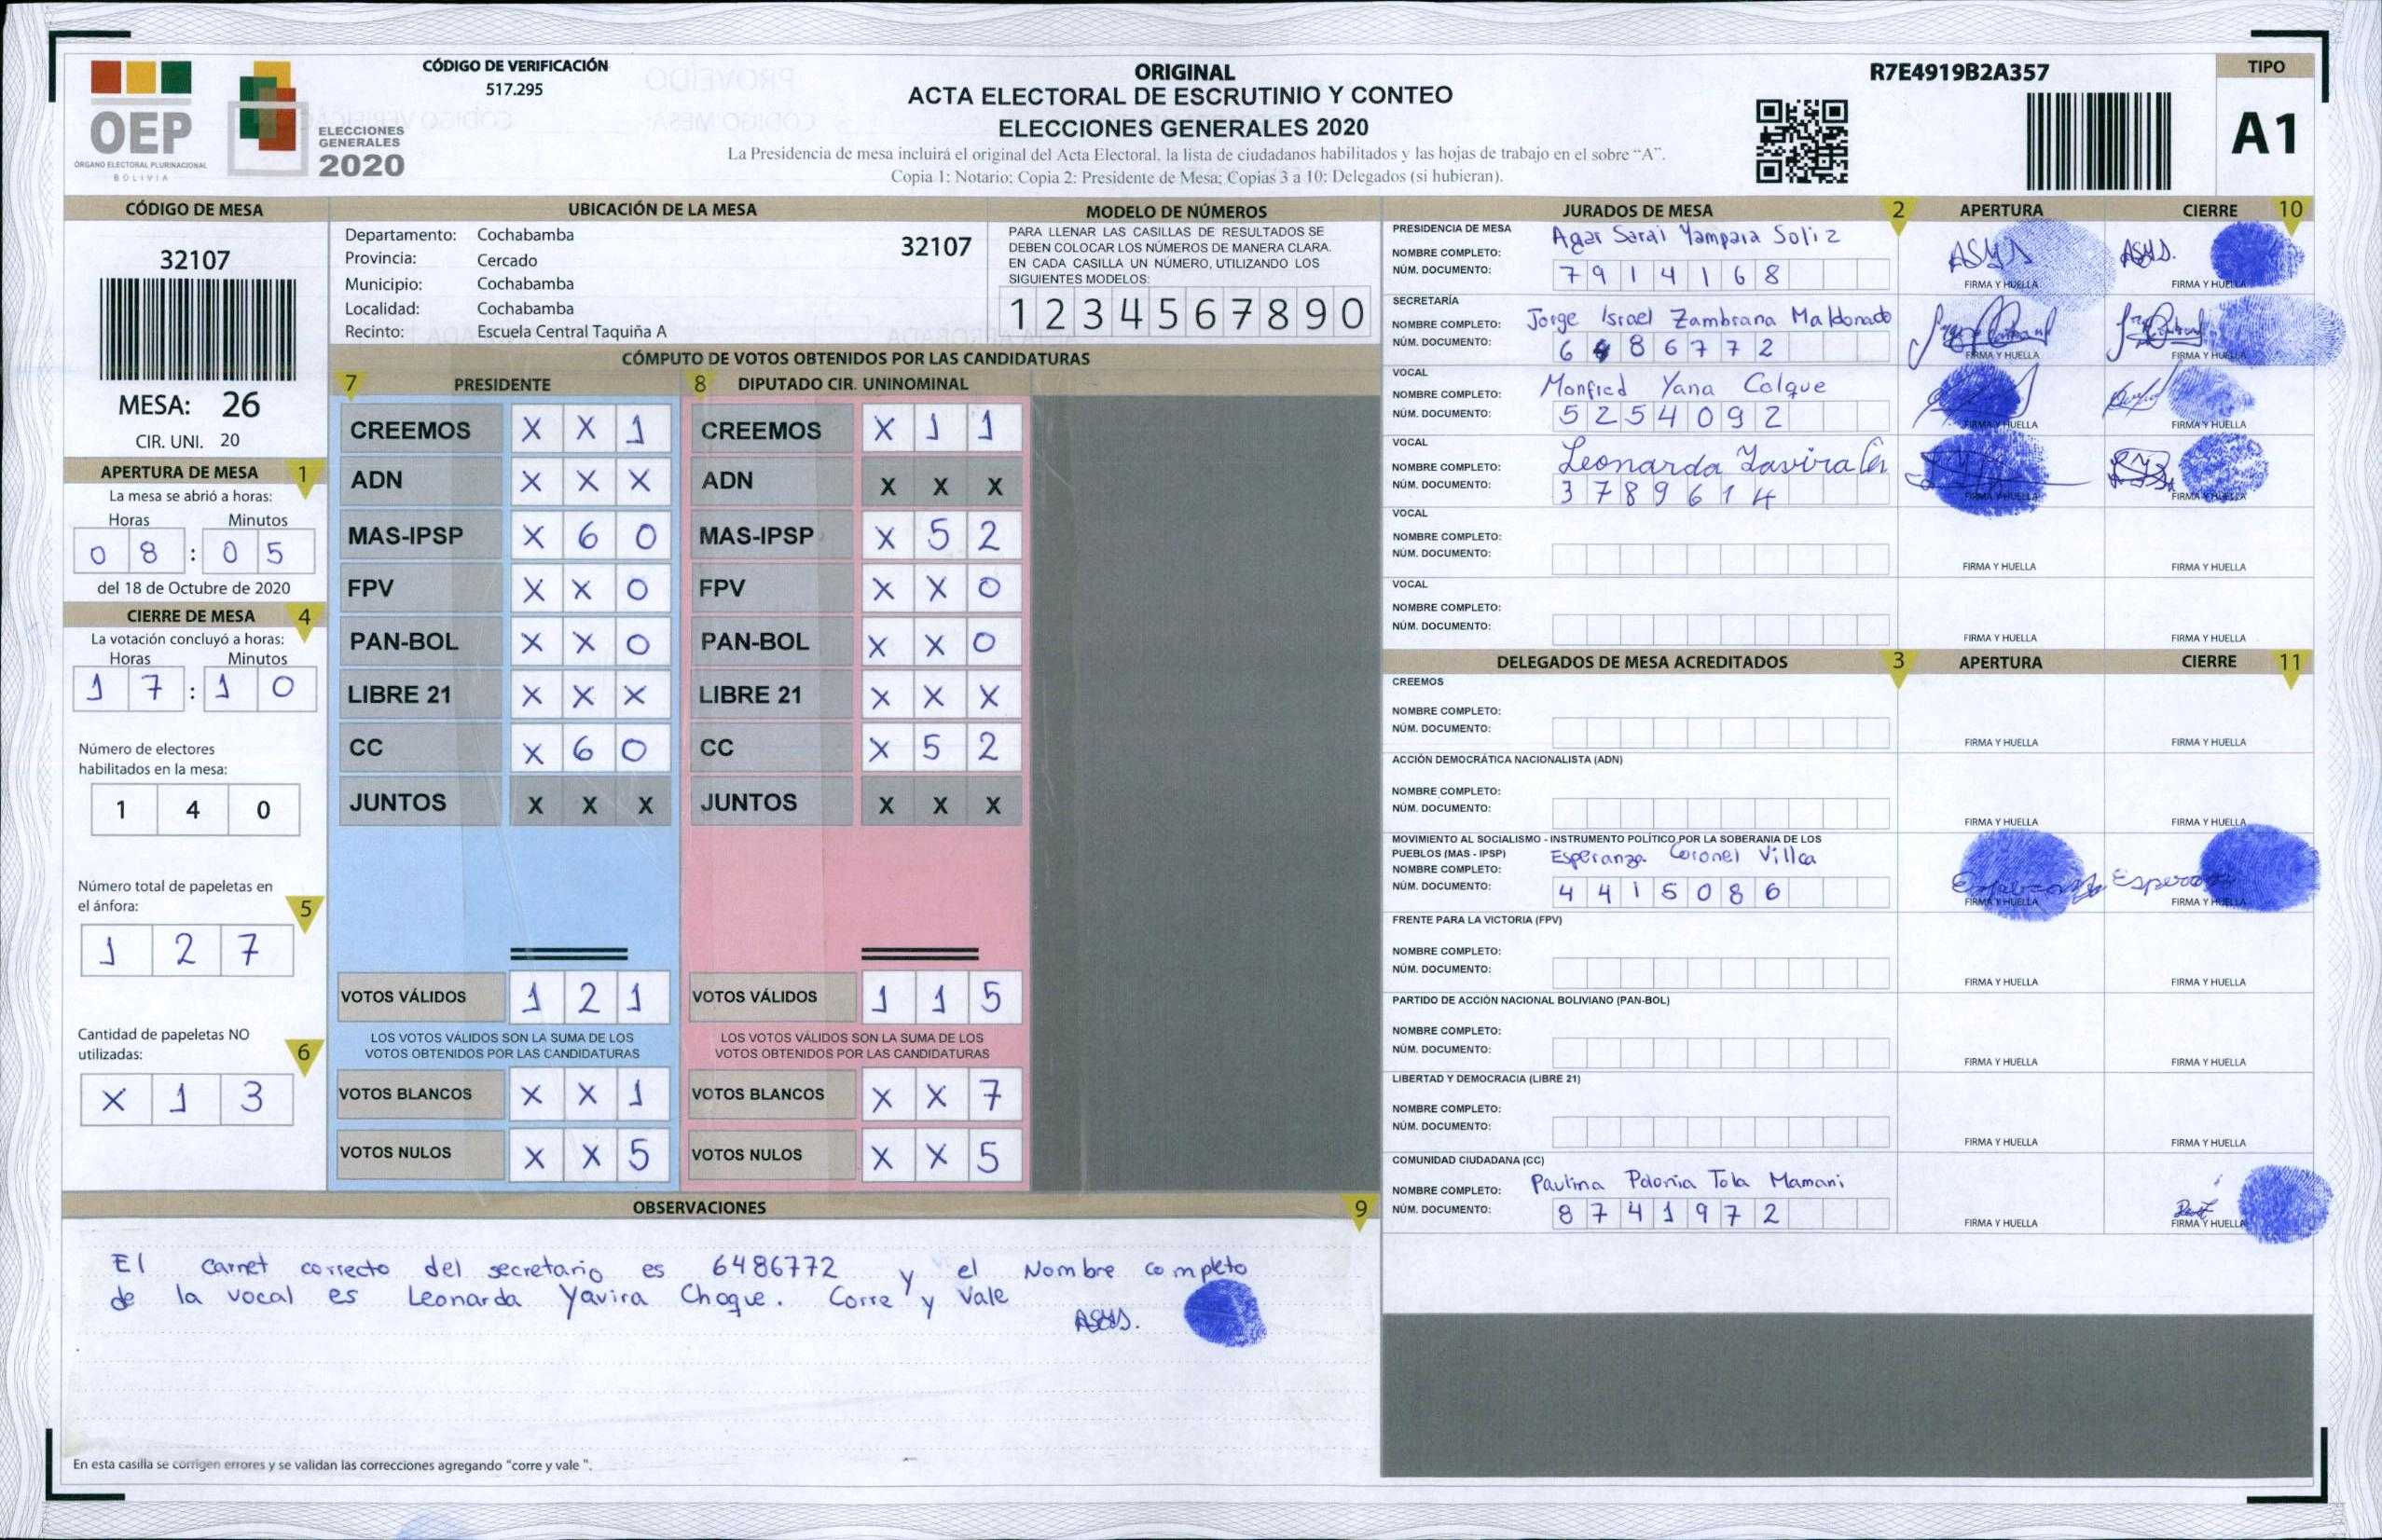 CÓDIGO DE VERIFICACIÓN
517.295
OEP
ÓRGANO ELECTORAL PLURINACIONAL
BOLIVIA
ELECCIONES
GENERALES
2020
ORIGINAL
ACTA ELECTORAL DE ESCRUTINIO Y CONTEO
ELECCIONES GENERALES 2020
La Presidencia de mesa incluirá el original del Acta Electoral, la lista de ciudadanos habilitados y las hojas de trabajo en el sobre "A".
Copia 1: Notario; Copia 2: Presidente de Mesa; Copias 3 a 10: Delegados (si hubieran).
R7E4919B2A357
TIPO
A1
CÓDIGO DE MESA
32107
MESA: 26
CIR. UNI. 20
APERTURA DE MESA 1
La mesa se abrió a horas:
Horas Minutos
0 8 : 0 5
del 18 de Octubre de 2020
CIERRE DE MESA 4
La votación concluyó a horas:
Horas Minutos
1 7 : 1 0
Número de electores
habilitados en la mesa:
1 4 0
Número total de papeletas en
el ánfora: 5
1 2 7
Cantidad de papeletas NO
utilizadas: 6
X 1 3
UBICACIÓN DE LA MESA
Departamento: Cochabamba 32107
Provincia: Cercado
Municipio: Cochabamba
Localidad: Cochabamba
Recinto: Escuela Central Taquiña A
MODELO DE NÚMEROS
PARA LLENAR LAS CASILLAS DE RESULTADOS SE
DEBEN COLOCAR LOS NÚMEROS DE MANERA CLARA.
EN CADA CASILLA UN NÚMERO, UTILIZANDO LOS
SIGUIENTES MODELOS:
1 2 3 4 5 6 7 8 9 0
CÓMPUTO DE VOTOS OBTENIDOS POR LAS CANDIDATURAS
7 PRESIDENTE 8 DIPUTADO CIR. UNINOMINAL
CREEMOS X X 1 CREEMOS X 1 1
ADN X X X ADN X X X
MAS-IPSP X 6 0 MAS-IPSP X 5 2
FPV X X 0 FPV X X 0
PAN-BOL X X 0 PAN-BOL X X 0
LIBRE 21 X X X LIBRE 21 X X X
CC X 6 0 CC X 5 2
JUNTOS X X X JUNTOS X X X
VOTOS VÁLIDOS 1 2 1 VOTOS VÁLIDOS 1 1 5
LOS VOTOS VÁLIDOS SON LA SUMA DE LOS LOS VOTOS VÁLIDOS SON LA SUMA DE LOS
VOTOS OBTENIDOS POR LAS CANDIDATURAS VOTOS OBTENIDOS POR LAS CANDIDATURAS
VOTOS BLANCOS X X 1 VOTOS BLANCOS X X 7
VOTOS NULOS X X 5 VOTOS NULOS X X 5
OBSERVACIONES 9
El carnet correcto del secretario es 6486772 y el Nombre completo
de la vocal es Leonarda Yavira Choque. Corre y Vale
ASYS.
En esta casilla se corrigen errores y se validan las correcciones agregando "corre y vale ".
JURADOS DE MESA 2 APERTURA CIERRE 10
PRESIDENCIA DE MESA
NOMBRE COMPLETO: Agar Sarai Yampara Soliz
NÚM. DOCUMENTO: 7 9 1 4 1 6 8
FIRMA Y HUELLA FIRMA Y HUELLA
SECRETARÍA
NOMBRE COMPLETO: Jorge Israel Zambrana Maldonado
NÚM. DOCUMENTO: 6 4 8 6 7 7 2
FIRMA Y HUELLA FIRMA Y HUELLA
VOCAL
NOMBRE COMPLETO: Monfied Yana Colque
NÚM. DOCUMENTO: 5 2 5 4 0 9 2
FIRMA Y HUELLA FIRMA Y HUELLA
VOCAL
NOMBRE COMPLETO: Leonarda Yavira
NÚM. DOCUMENTO: 3 7 8 9 6 1 4
FIRMA Y HUELLA FIRMA Y HUELLA
VOCAL
NOMBRE COMPLETO:
NÚM. DOCUMENTO:
FIRMA Y HUELLA FIRMA Y HUELLA
VOCAL
NOMBRE COMPLETO:
NÚM. DOCUMENTO:
FIRMA Y HUELLA FIRMA Y HUELLA
DELEGADOS DE MESA ACREDITADOS 3 APERTURA CIERRE 11
CREEMOS
NOMBRE COMPLETO:
NÚM. DOCUMENTO:
FIRMA Y HUELLA FIRMA Y HUELLA
ACCIÓN DEMOCRÁTICA NACIONALISTA (ADN)
NOMBRE COMPLETO:
NÚM. DOCUMENTO:
FIRMA Y HUELLA FIRMA Y HUELLA
MOVIMIENTO AL SOCIALISMO - INSTRUMENTO POLÍTICO POR LA SOBERANIA DE LOS
PUEBLOS (MAS - IPSP)
NOMBRE COMPLETO: Esperanza Coronel Villca
NÚM. DOCUMENTO: 4 4 1 5 0 8 6
FIRMA Y HUELLA FIRMA Y HUELLA
FRENTE PARA LA VICTORIA (FPV)
NOMBRE COMPLETO:
NÚM. DOCUMENTO:
FIRMA Y HUELLA FIRMA Y HUELLA
PARTIDO DE ACCIÓN NACIONAL BOLIVIANO (PAN-BOL)
NOMBRE COMPLETO:
NÚM. DOCUMENTO:
FIRMA Y HUELLA FIRMA Y HUELLA
LIBERTAD Y DEMOCRACIA (LIBRE 21)
NOMBRE COMPLETO:
NÚM. DOCUMENTO:
FIRMA Y HUELLA FIRMA Y HUELLA
COMUNIDAD CIUDADANA (CC)
NOMBRE COMPLETO: Paulina Polonia Tola Mamani
NÚM. DOCUMENTO: 8 7 4 1 9 7 2
FIRMA Y HUELLA FIRMA Y HUELLA